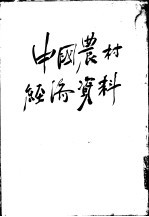 中國農村
經濟資料